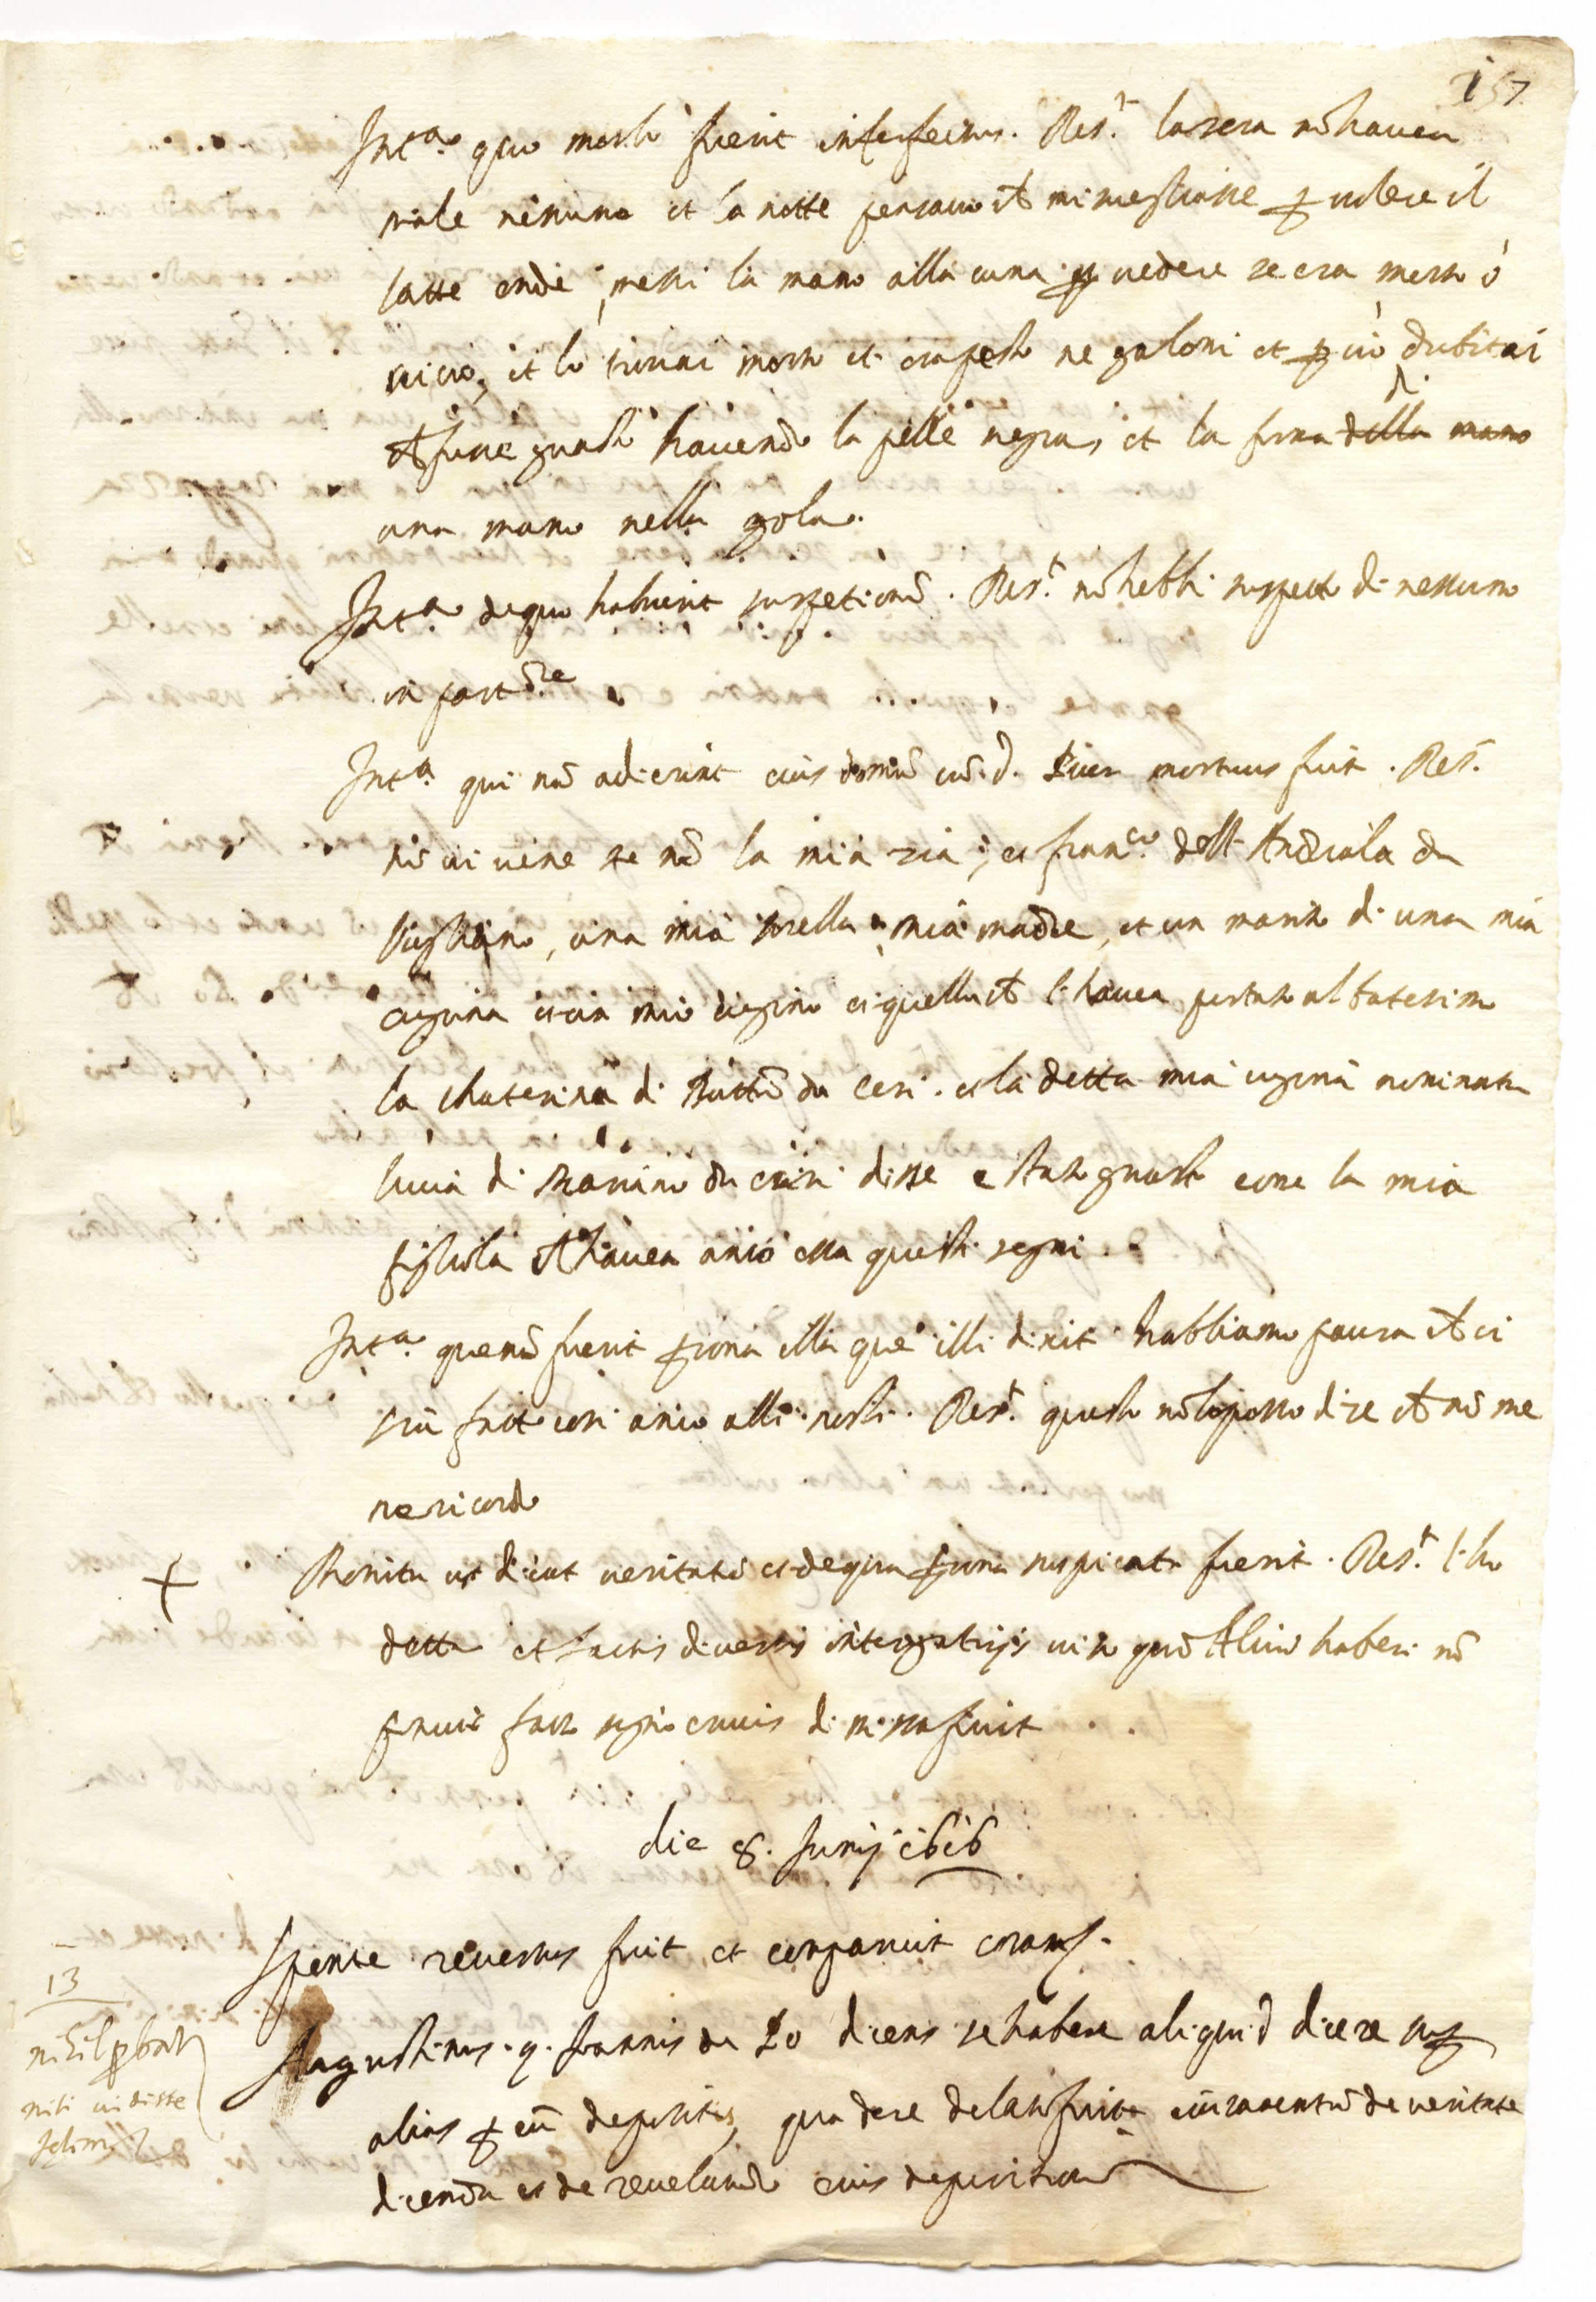 157
Int.a quo modo fuerit interfectus. Res.t la sera nõ haveva
male nessuno et la notte pensavo ch mi mestiasse ꝑ volere il
latte onde messi la mano alla cuna ꝑ vedere se era morto ó
vivo, et lo trovai morto et era pesto ne galoni et ꝑ ciò dubitai
ch fusse guasto havendo la pelle negra, et la forma della mano di
una mano nella gola.
Int.a de quo habuerit suspetionẽ. Res.t nõ hebbi suspetto di nessuno
in partre
Int.a qui nã adierint eius domũ cũ d. puer mortuus fuit. Res.
nõ vi vine se nõ la mia zia, et Fran.co dell Andriola da
una mia sorella, mia madre, et un marito di una mia
cugina et un mio cugino et quella ch l'havea portato al batesimo
la Chaterina di da Ceri. et la detta mia cugina nominata
Lucia di da disse e stato guasto come la mia
figliola ch havea anco essa questi segni.
Int.a quenã fuerit ꝑsona illa que illi dixit habbiamo paura ch ci
sia fatto cosi anco alli nostri. Res.t questo nõ lo posso dire ch nõ me
ne ricordo
+ Monita ut dicat veritatẽ et de qua ꝑsona suspicata fuerit. Res.t l'ho
detta et factis diversis interrogatorijs viso quod Aliud haberi nõ
potuit facto signo crucis dimissa fuit
die 8. Junij 1616
Sponte reversus fuit et comparuit coram
Augustinus q. Joannis de Lo dicens se habere aliquid dicere sup
alias ꝑ eũ depositis, qua de re delato sibi iuramento de veritate
dicenda et de revelando eius depositionẽ
13
nihil ꝓbat
nisi vidisse